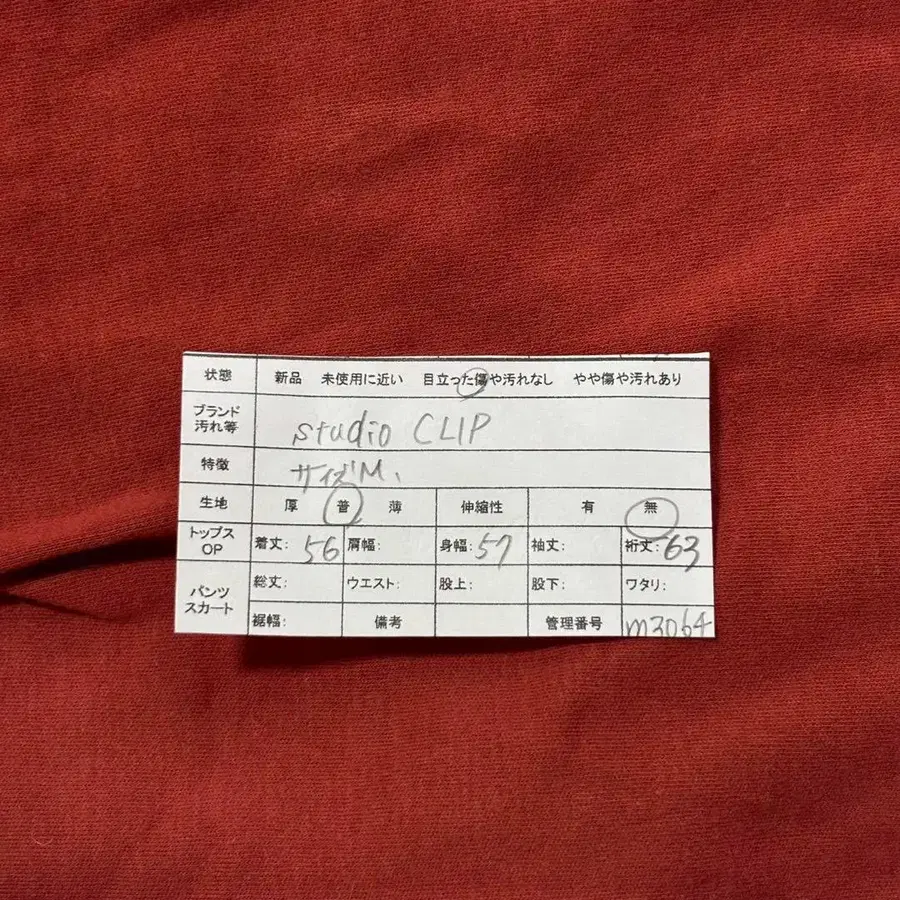 状態 新品 未使用に近い 目立った傷や汚れなし やや傷や汚れあり
ブランド
汚れ等 studio CLIP
特徴 サイズM、
生地 厚 普 薄 伸縮性 有 無
トップス
OP 着丈: 56 肩幅: 身幅: 57 袖丈: 裄丈: 63
パンツ
スカート 総丈: ウエスト: 股上: 股下: ワタリ:
裾幅: 備考 管理番号 m3064